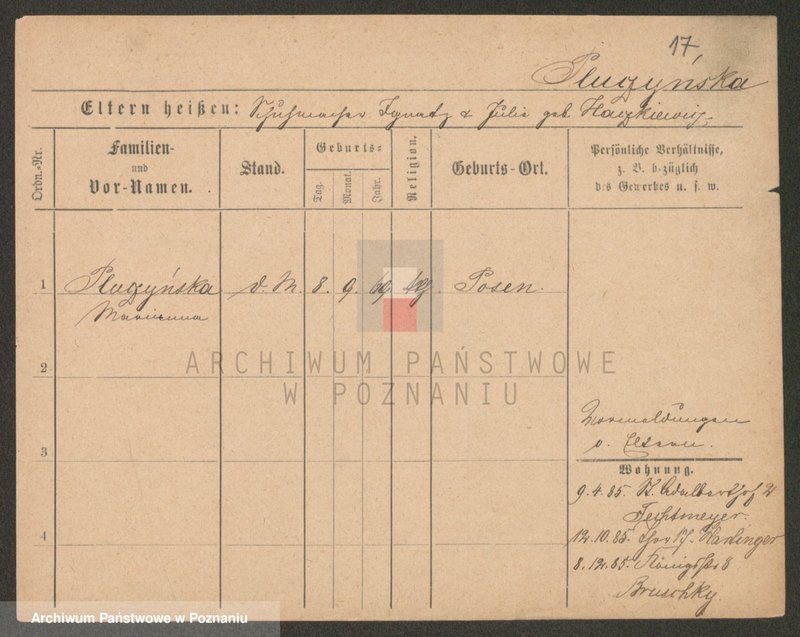 17
Pluczyńska
Eltern heißen: Schuhmacher Ignatz & Julie geb. Haczkiewicz
Ordn.-Nr.
Familien-
und
Vor-Namen.
Stand.
Geburts-
Tag.
Monat.
Jahr.
Religion.
Geburts-Ort.
Persönliche Verhältnisse,
z. B. bezüglich
des Gewerbes u. s. w.
1 Pluczyńska d. M. 8. 9. 69. Posen.
Marianna
2
3
4
Vormeldungen
v. Eltern.
Wohnung.
9.4.85. St. Adalberthof 2
Fechtmeyer.
12.10.85. Hadinger
8.12.85. Königsstr 8
Bruschky.
ARCHIWUM PAŃSTWOWE
W POZNANIU
Archiwum Państwowe w Poznaniu